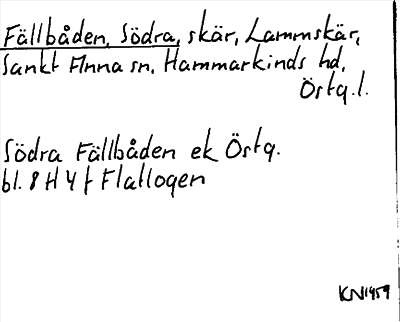 Fällbåden, Södra, skär, Lammskär,
Sankt Anna sn, Hammarkinds hd,
Östg.l.
Södra Fällbåden ek Östg.
bl. 8 H 4 f Flatlogen
KN1959